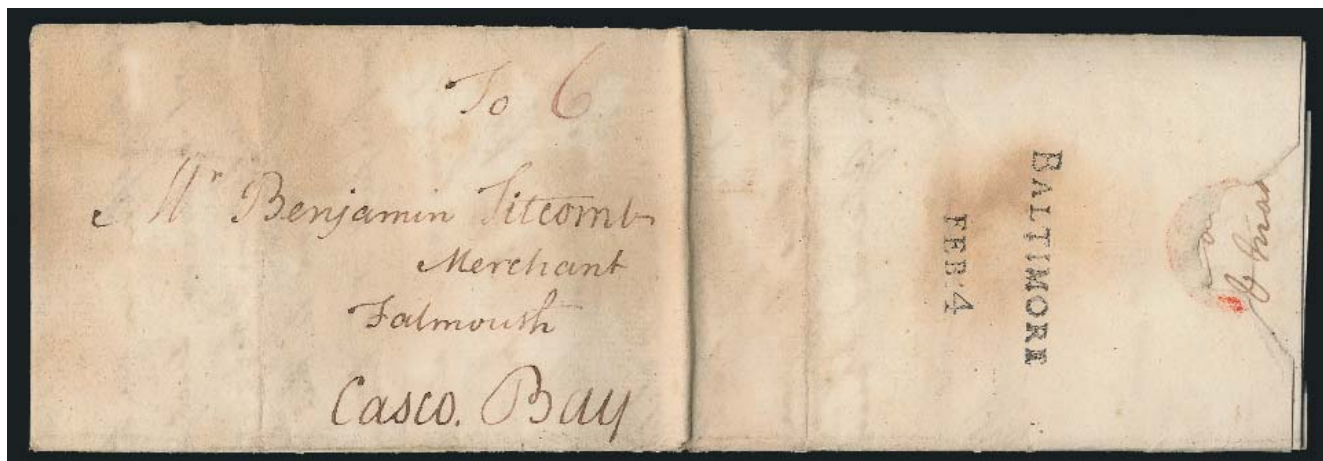 To 6
Mr Benjamin Titcomb
Merchant
Falmouth
Casco. Bay
BALTIMORE
FEB:4